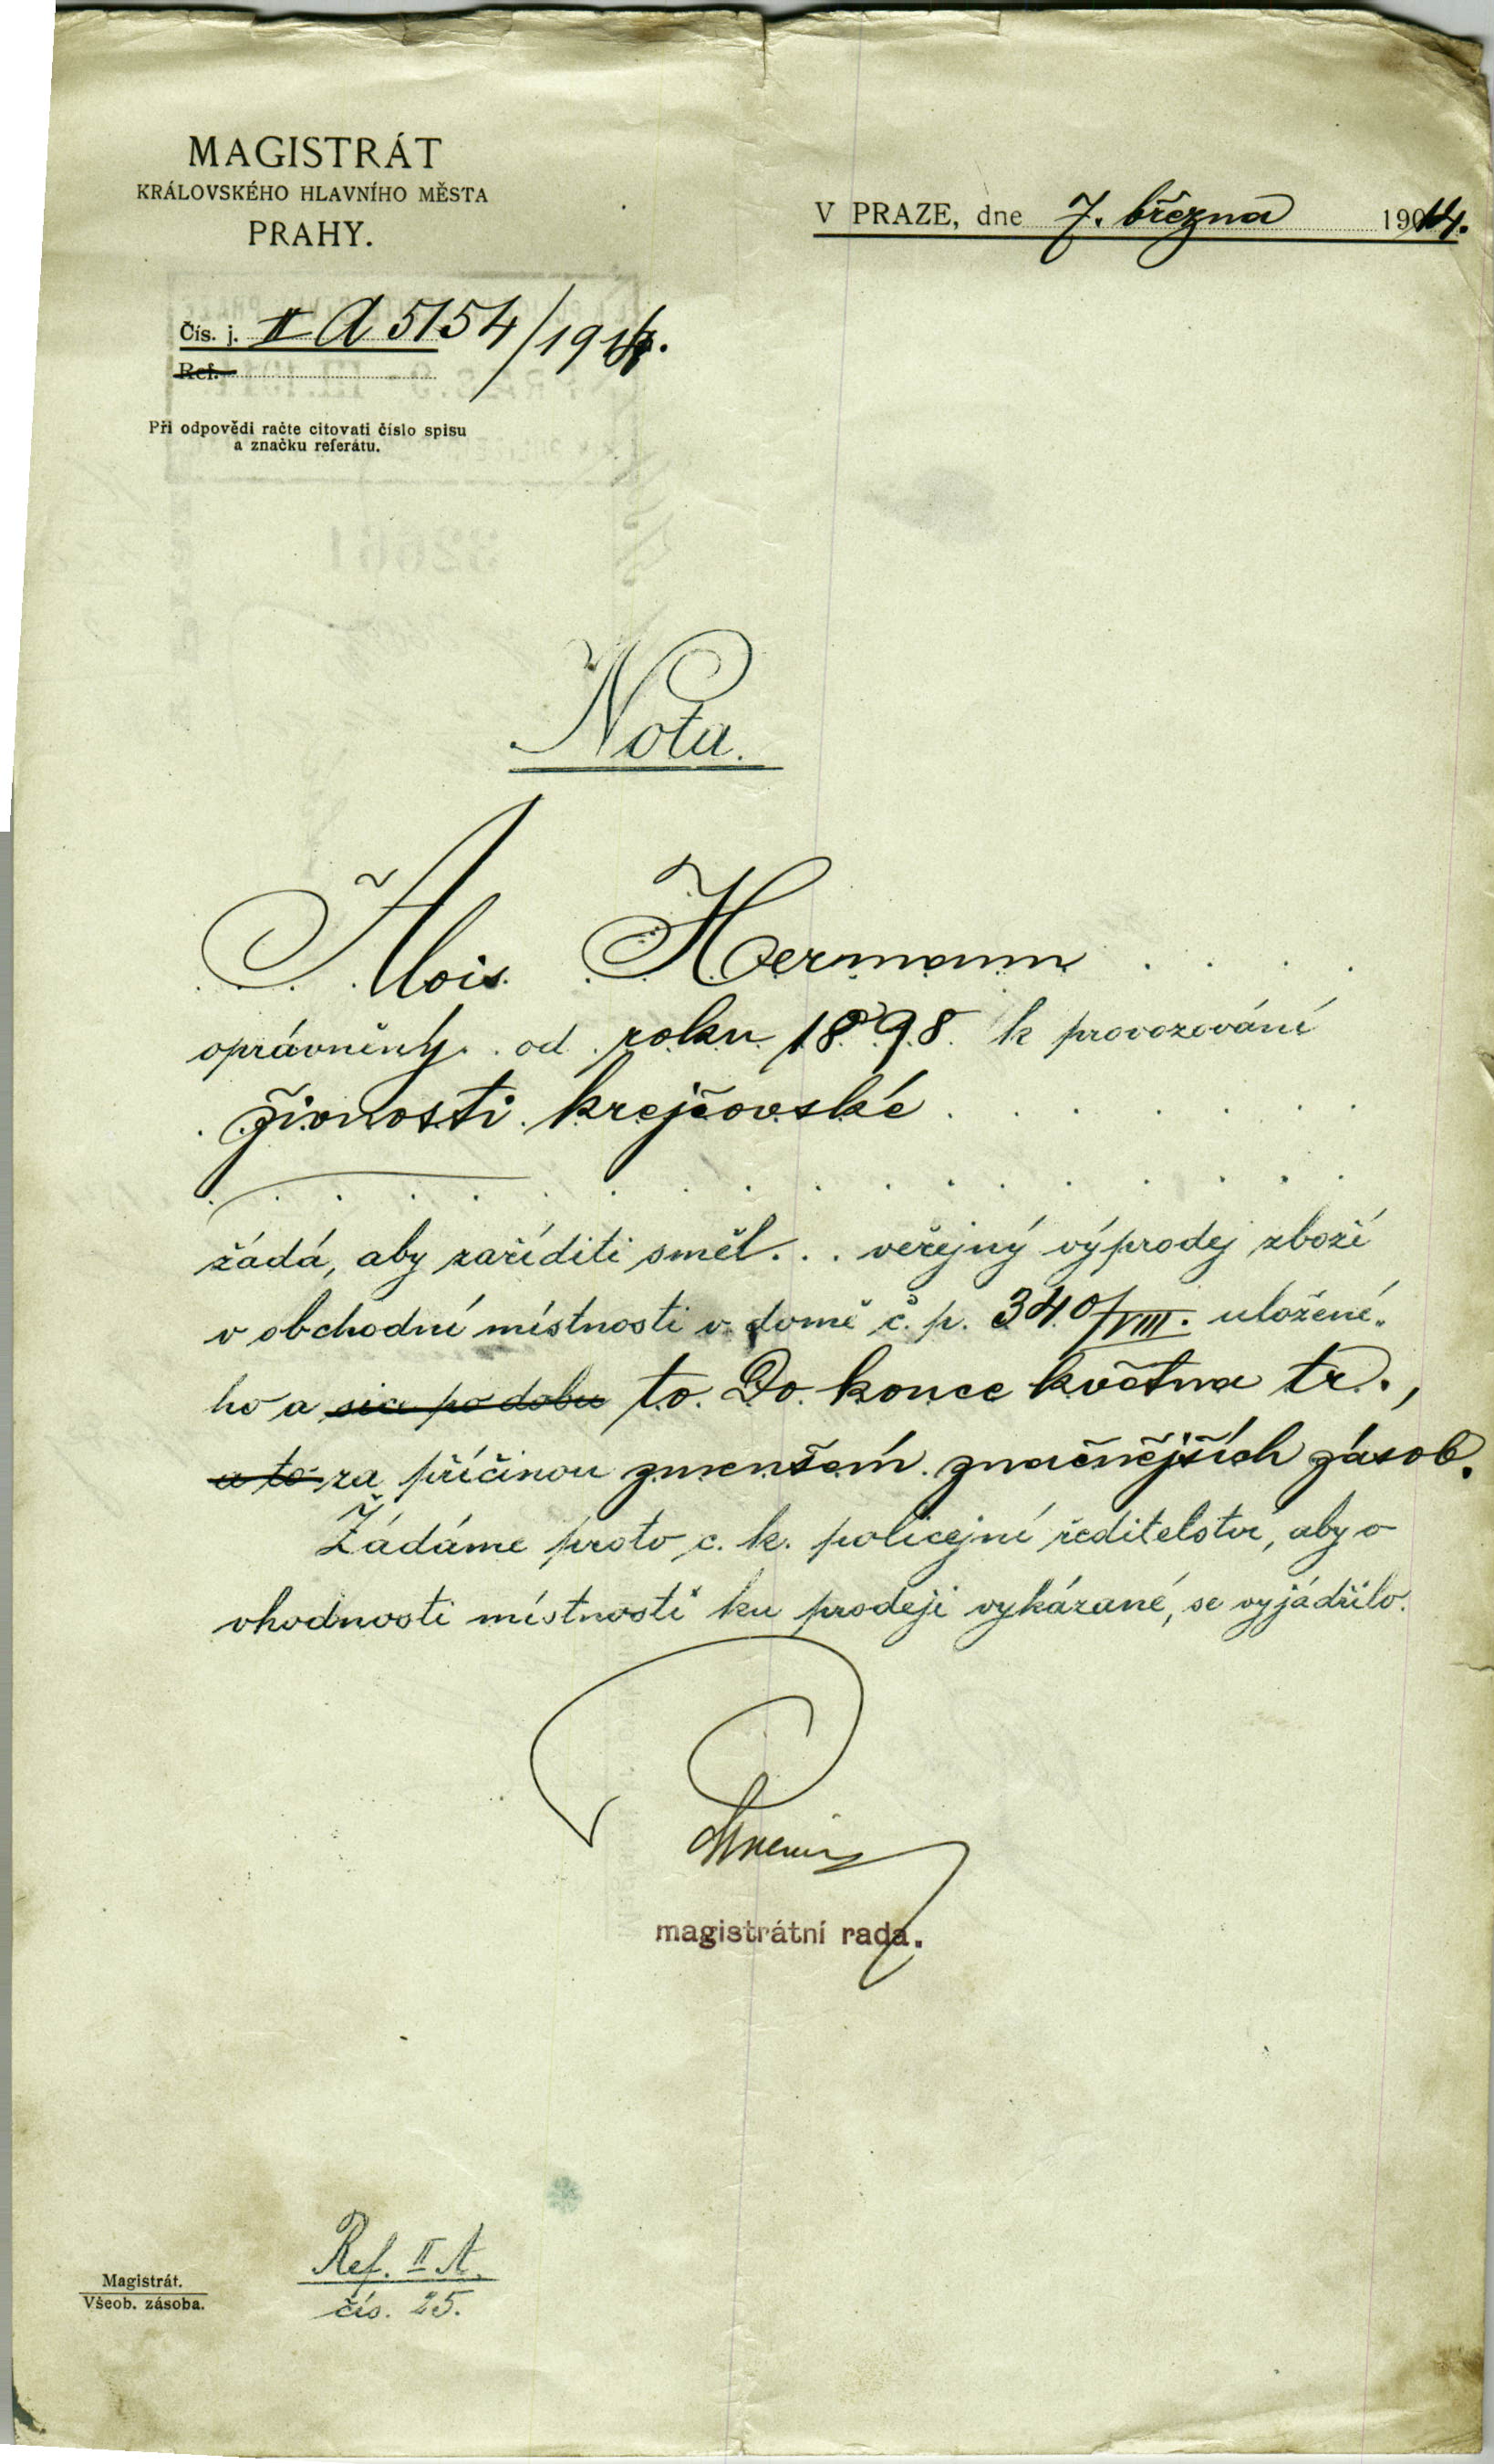 MAGISTRÁT
KRÁLOVSKÉHO HLAVNÍHO MĚSTA
PRAHY.
V PRAZE, dne 7. března 1914.
Čís. j. II A 5154/1914.
Ref.
Při odpovědi račte citovati číslo spisu
a značku referátu.
Nota.
Alois Hermann
oprávněný od roku 1898 k provozování
živnosti krejčovské
žádá, aby zaříditi směl veřejný výprodej zboží
v obchodní místnosti v domě č. p. 340/VIII. uložené-
ho a sice po dobu to. Do konce května tr.,
a to za příčinou zmenšení značnějších zásob.
Žádáme proto c. k. policejní ředitelství, aby o
vhodnosti místnosti ku prodeji vykázané, se vyjádřilo.
magistrátní rada.
Ref. II A.
čís. 25.
Magistrát.
Všeob. zásoba.